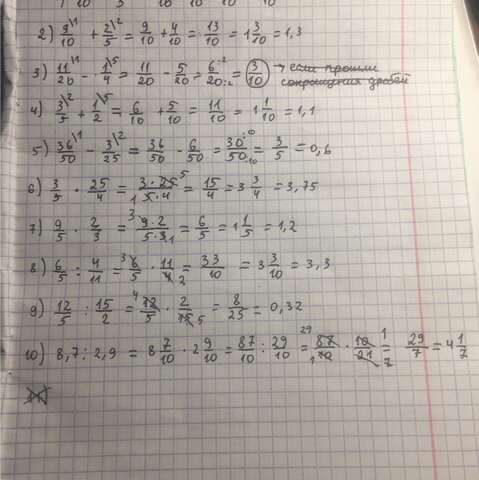 2) 9\1/10 + 2\2/5 = 9/10 + 4/10 = 13/10 = 1 3/10 = 1,3
3) 11\1/20 - 1\5/4 = 11/20 - 5/20 = 6:2/20:2 = 3/10 → если прошли сокращения дробей
4) 3\2/5 + 1\5/2 = 6/10 + 5/10 = 11/10 = 1 1/10 = 1,1
5) 36\1/50 - 3\2/25 = 36/50 - 6/50 = 30:10/50:10 = 3/5 = 0,6
6) 3/5 · 25/4 = 3·25 5/1 5·4 = 15/4 = 3 3/4 = 3,75
7) 9/5 · 2/3 = 3 9·2/5·3 1 = 6/5 = 1 1/5 = 1,2
8) 6/5 : 4/11 = 3 6/5 · 11/4 2 = 33/10 = 3 3/10 = 3,3
9) 12/5 : 15/2 = 4 12/5 · 2/15 5 = 8/25 = 0,32
10) 8,7 : 2,9 = 8 7/10 · 2 9/10 = 87/10 : 29/10 = 29 87/1 10 · 10 1/21 7 = 29/7 = 4 1/7